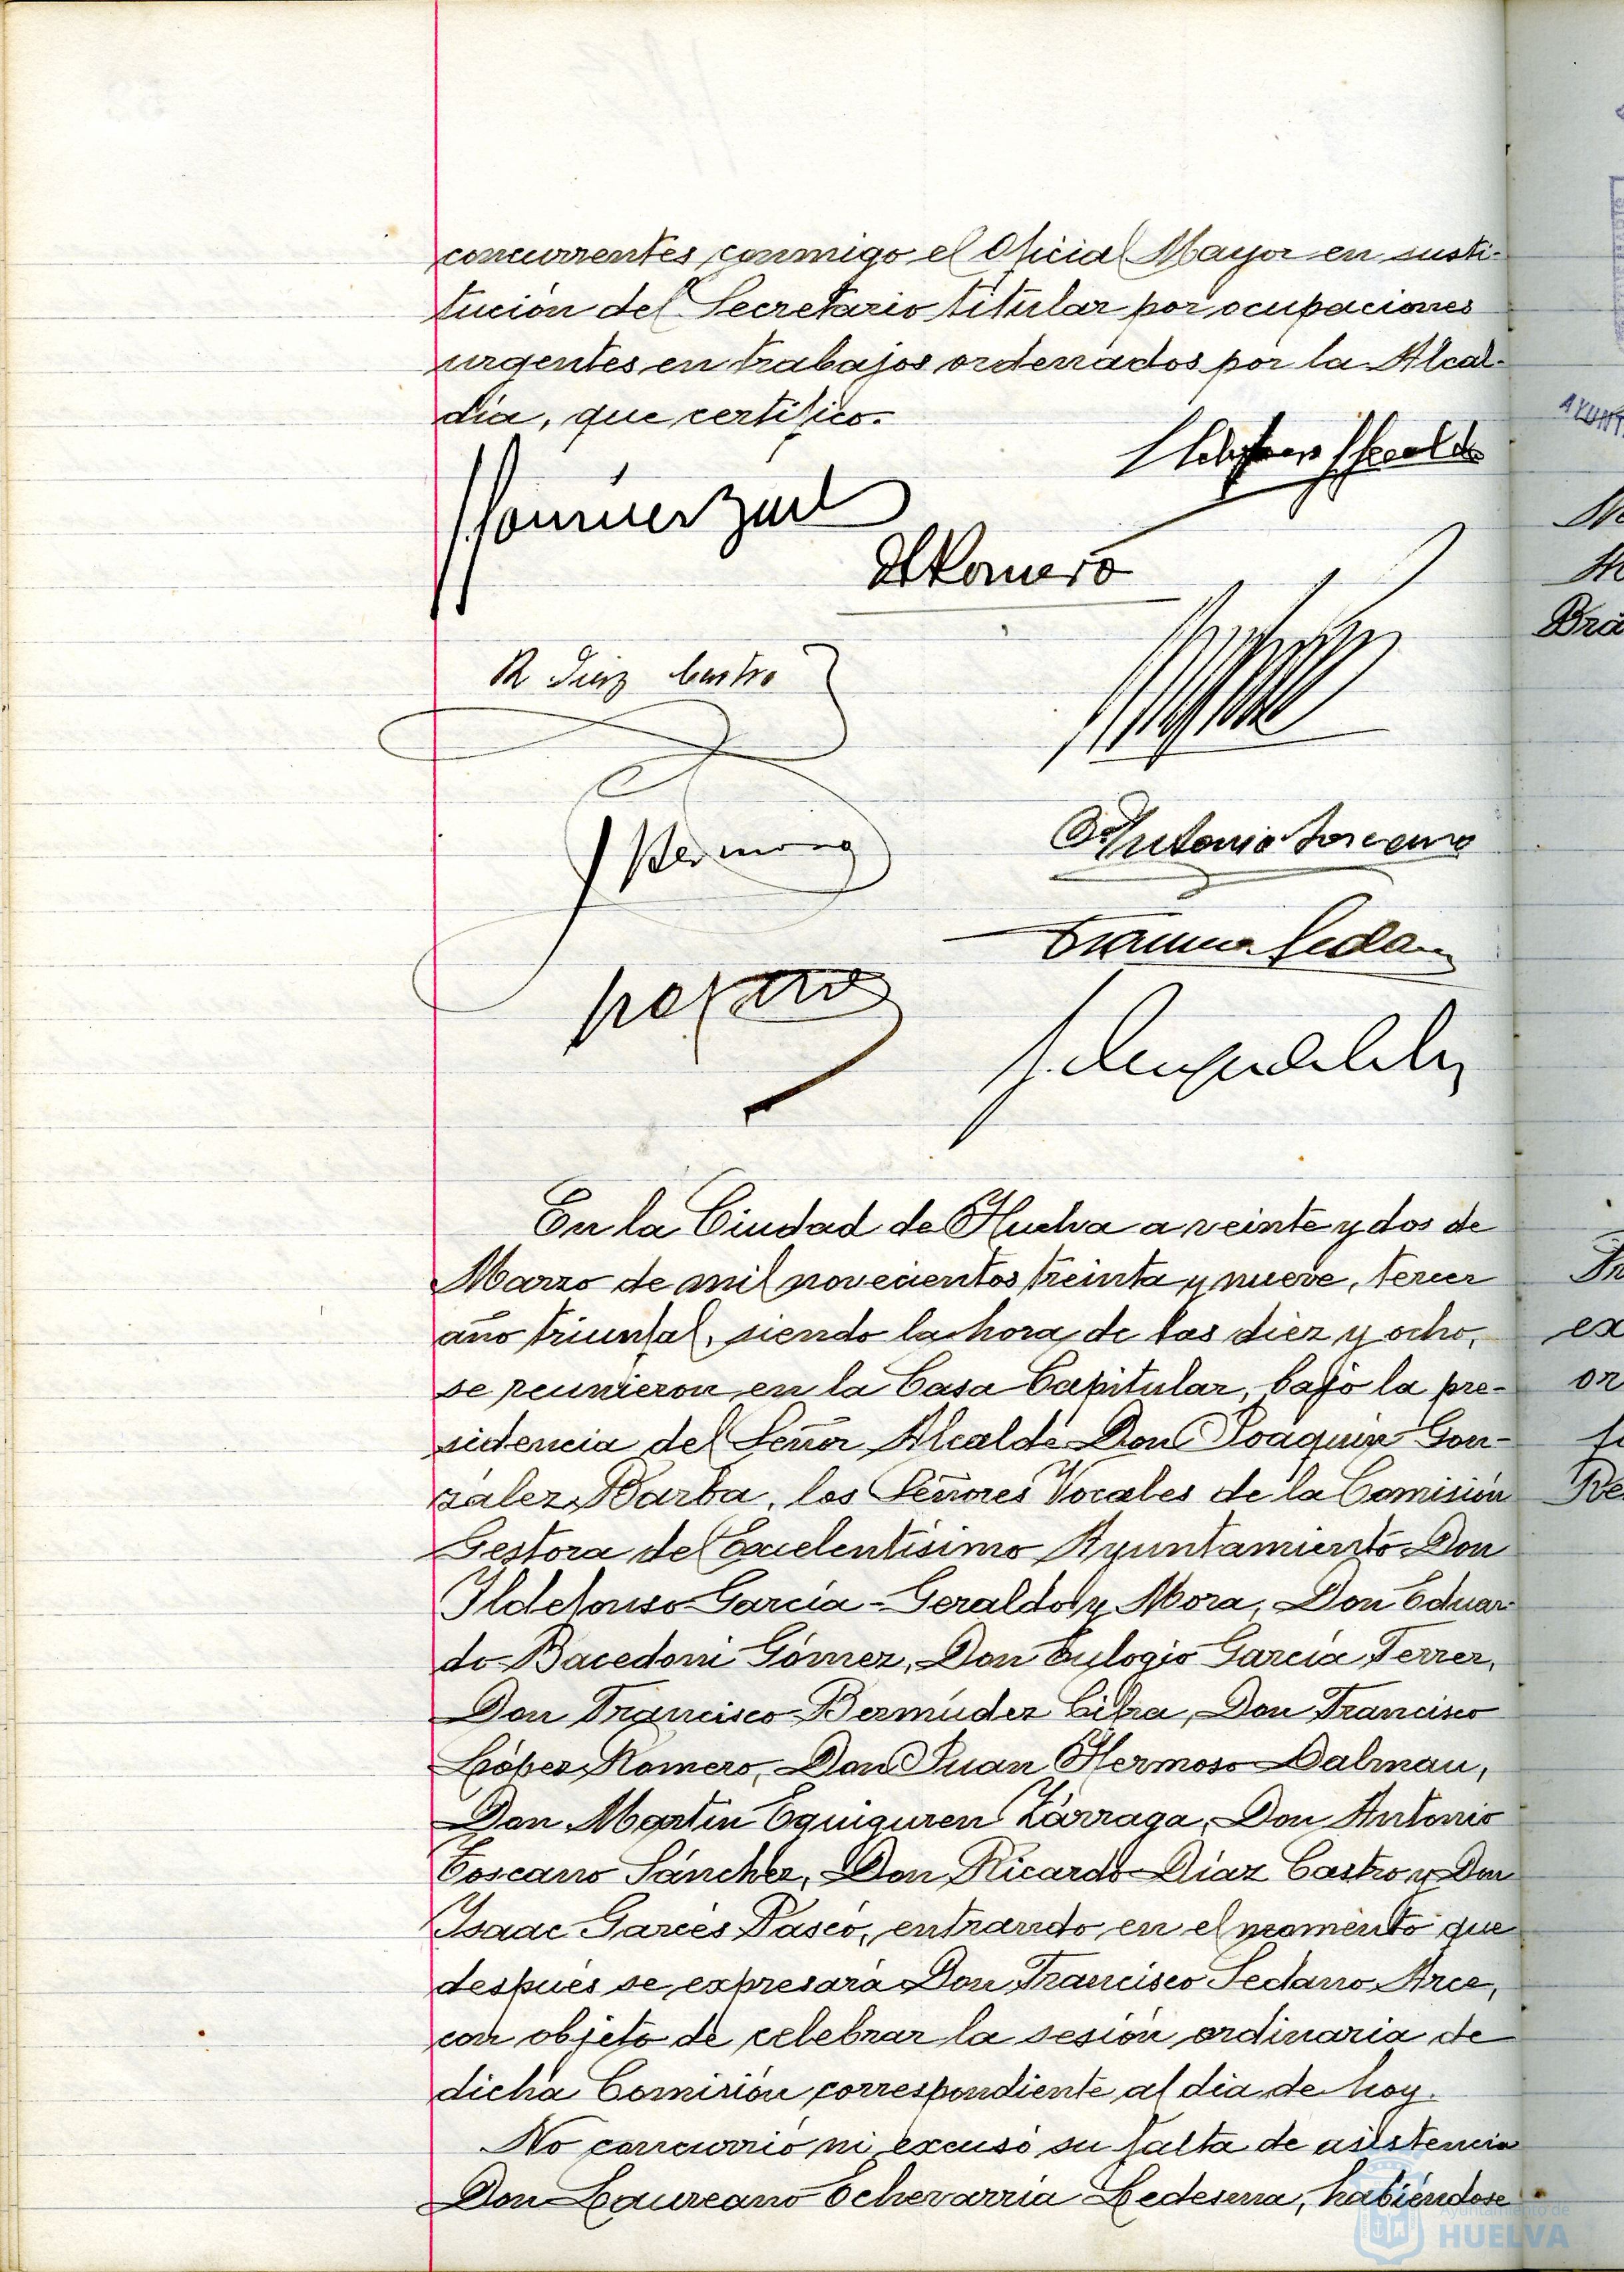 concurrentes conmigo el Oficial Mayor en susti-
tución del Secretario titular por ocupaciones
urgentes en trabajos ordenados por la Alcal-
día, que certifico.
R Díaz Castro
Antonio Toscano
En la Ciudad de Huelva a veinte y dos de
Marzo de mil novecientos treinta y nueve, tercer
año triunfal, siendo la hora de las diez y ocho,
se reunieron en la Casa Capitular, bajo la pre-
sidencia del Señor Alcalde Don Joaquín Gon-
zález Barba, los Señores Vocales de la Comisión
Gestora del Excelentísimo Ayuntamiento Don
Ildefonso García-Geraldo y Mora, Don Eduar
do Bacedoni Gómez, Don Eulogio García Ferrer,
Don Francisco Bermúdez Cifra, Don Francisco
López Romero, Don Juan Hermoso Dalmau,
Don Martín Eguiguren Zárraga, Don Antonio
Toscano Sánchez, Don Ricardo Díaz Castro y Don
Isaac Garcés Paseo, entrando en el momento que
después se expresará Don Francisco Sedano Arce,
con objeto de celebrar la sesión ordinaria de
dicha Comisión correspondiente al día de hoy.
No concurrió ni excusó su falta de asistencia
Don Laureano Echevarría Ledesma, habiéndose
Ayuntamiento de
HUELVA